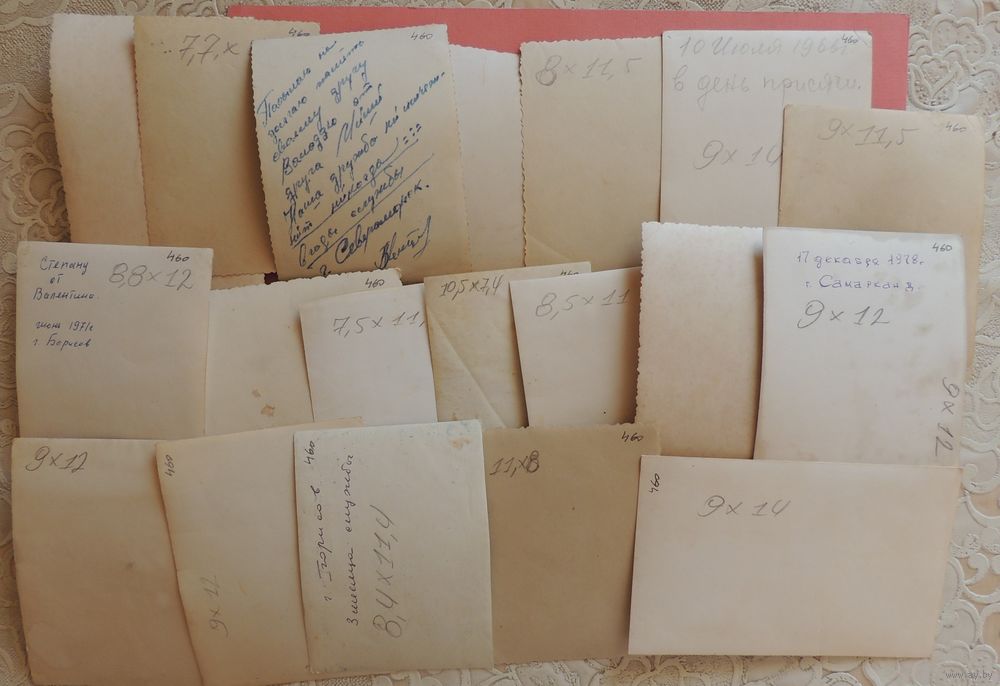 7,7 x
460
460
на
долгую память
своему другу
Володзю от
друга
Наша дружба не
никогда!!!
Годы службы
г. Североморск.
8 x 11,5
10 Июля 1966г
460
в день присяги.
9 x 14
460
9 x 11,5
460
Степану
от
Валентина.
июнь 1971г
г. Борисов
8,8 x 12
460
7,5 x 11,
10,5 x 7,4
460
8,5 x 11
460
17 декабря 1978г
г. Самарканд.
9 x 12
9 x 12
9 x 12
460
9 x 12
460
г. Борисов
3 месяца службы
8,4 x 11,4
460
11, x 8
460
9 x 14
www.ay.by